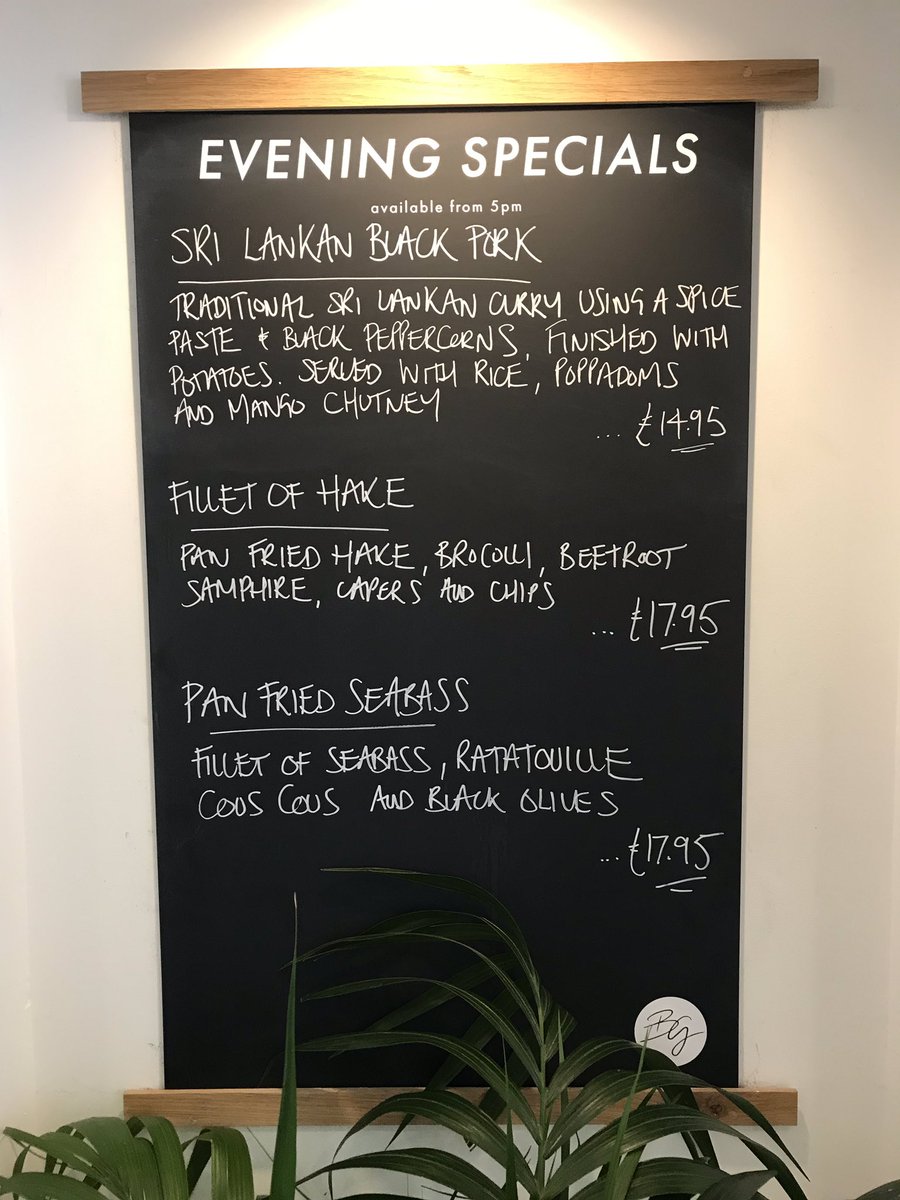 EVENING SPECIALS
available from 5pm
SRI LANKAN BLACK PORK
TRADITIONAL SRI LANKAN CURRY USING A SPICE
PASTE & BLACK PEPPERCORNS, FINISHED WITH
POTATOES. SERVED WITH RICE, POPPADOMS
AND MANGO CHUTNEY
... £14.95
FILLET OF HAKE
PAN FRIED HAKE, BROCOLLI, BEETROOT
SAMPHIRE, CAPERS AND CHIPS
... £17.95
PAN FRIED SEABASS
FILLET OF SEABASS, RATATOUILLE
COUS COUS AND BLACK OLIVES
... £17.95
BG